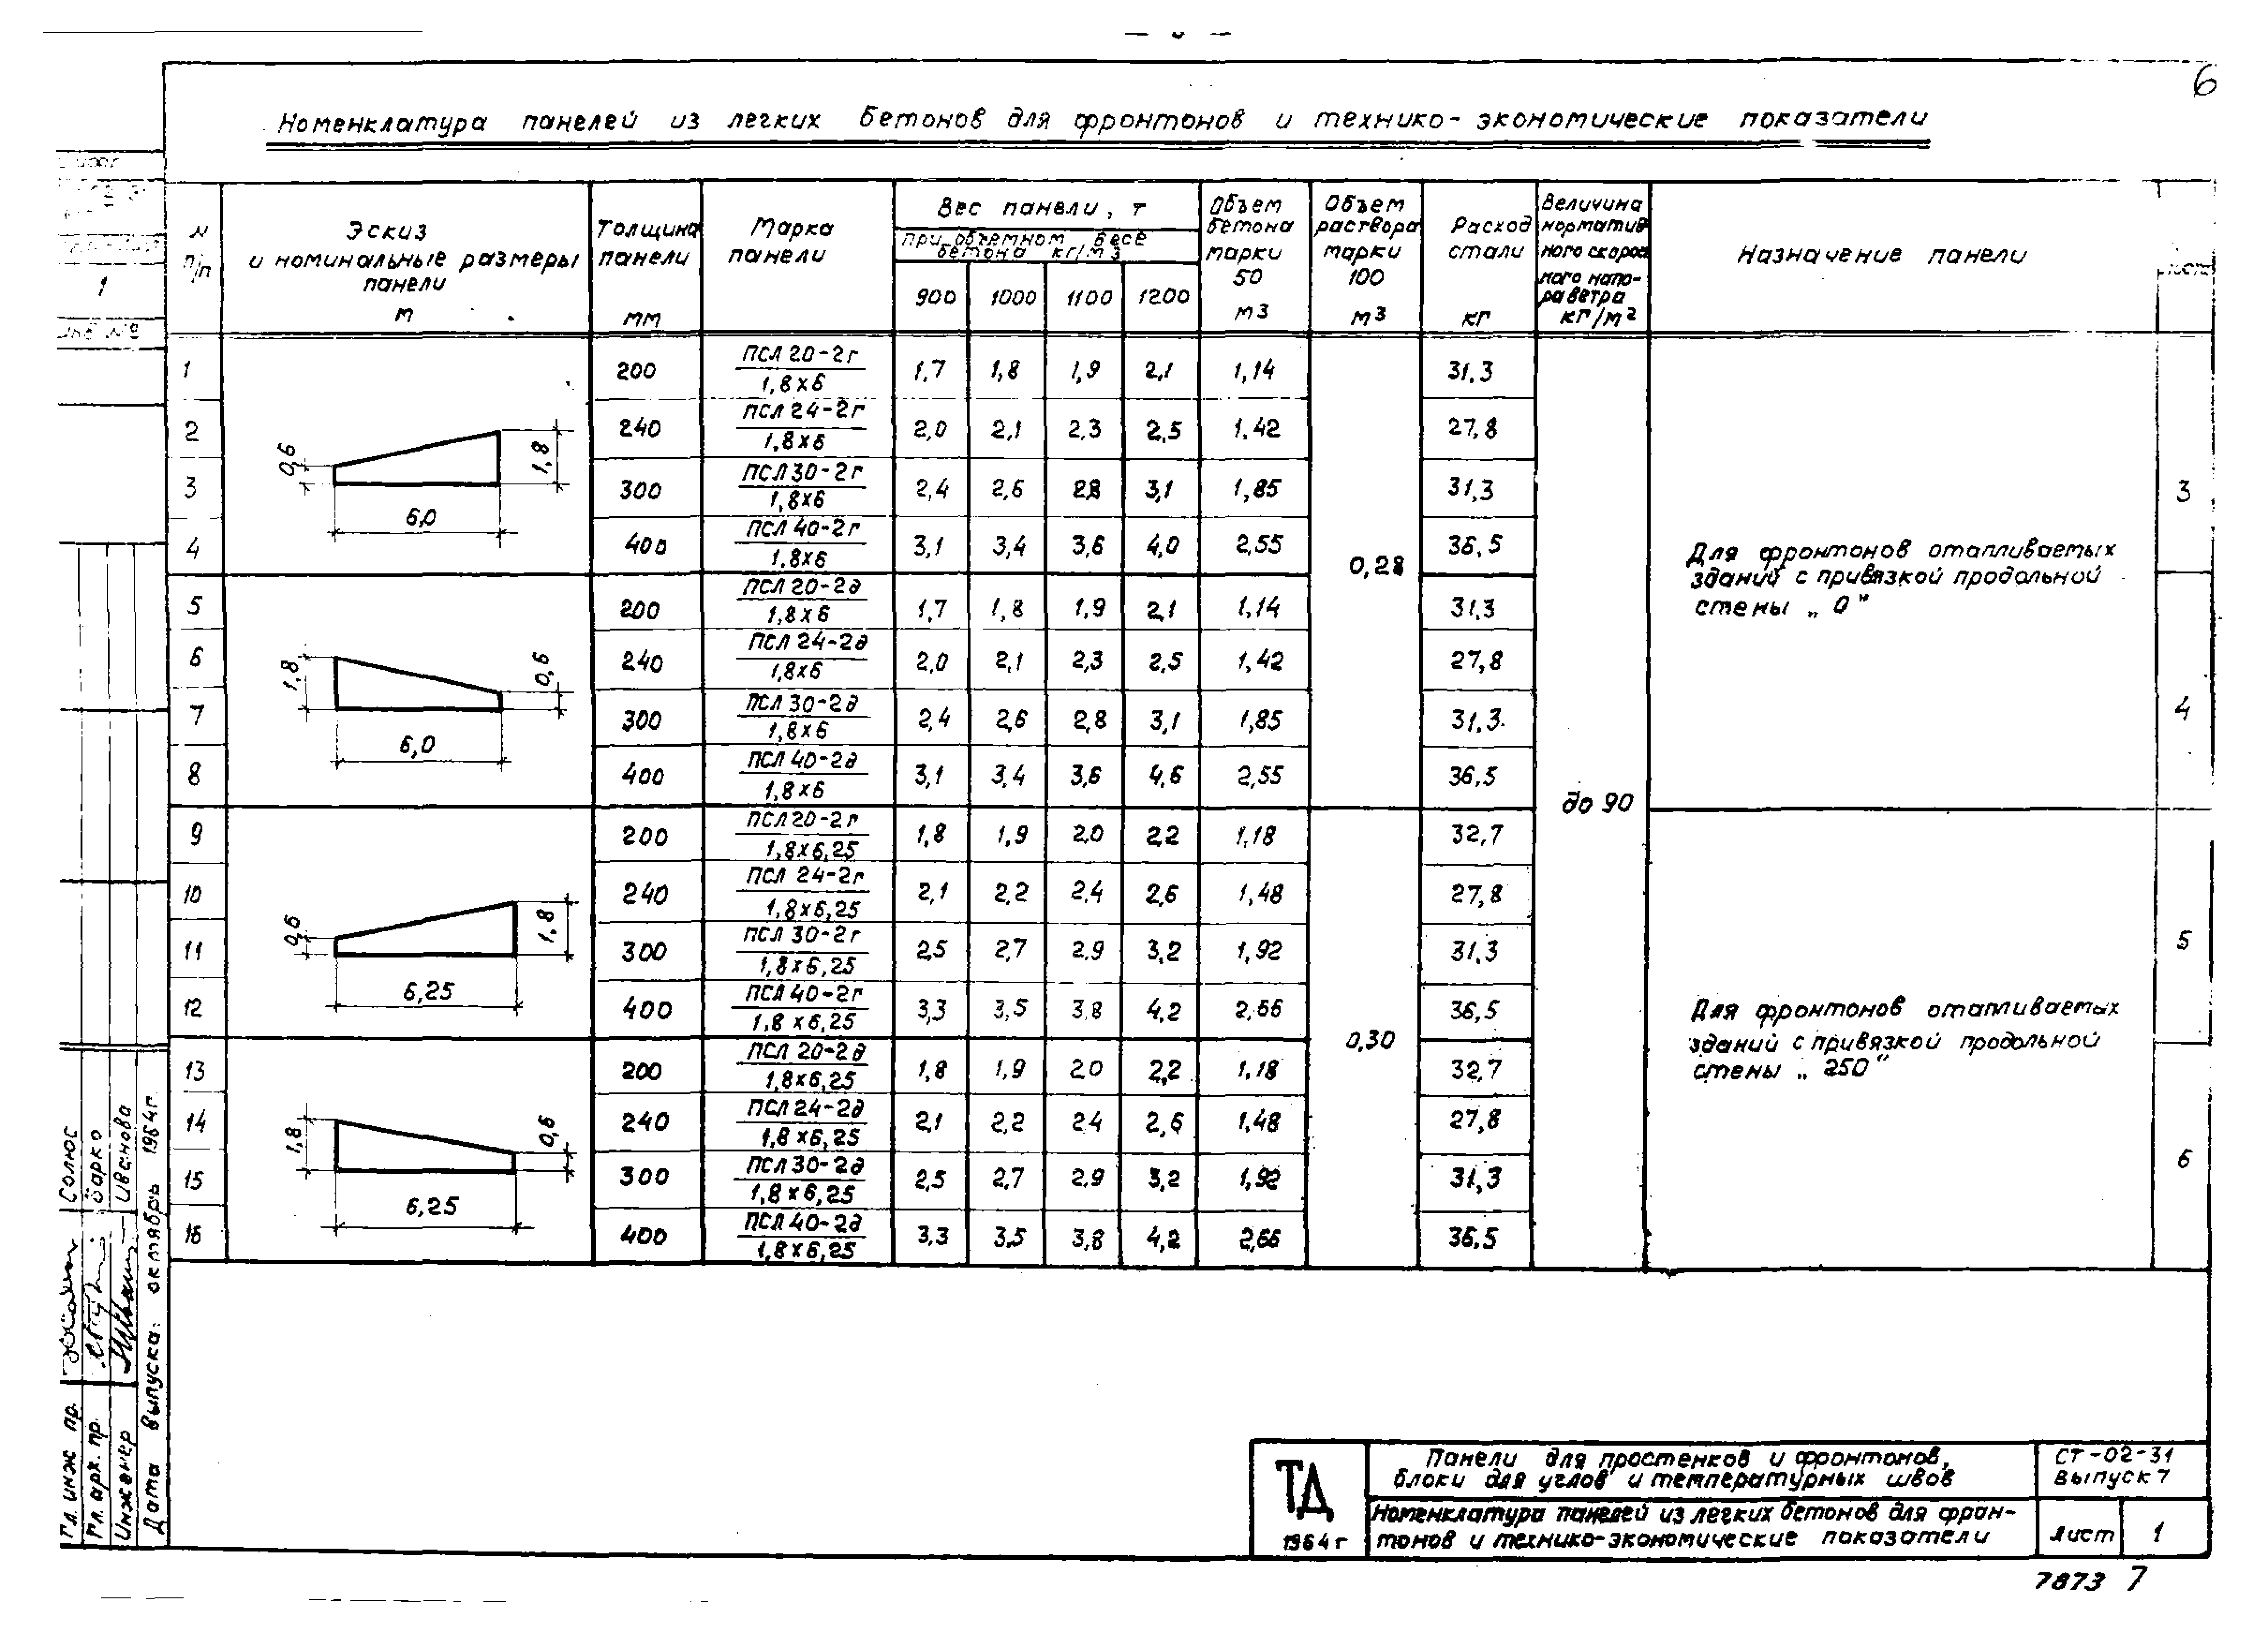 6
Номенклатура панелей из легких бетонов для фронтонов и технико-экономические показатели
№ п/п
Эскиз и номинальные размеры панели м
Толщина панели мм
Марка панели
Вес панели, т
при объемном весе бетона кг/м3
900 1000 1100 1200
Объем бетона марки 50 м3
Объем раствора марки 100 м3
Расход стали кг
Величина норматив ного скорос ного напо- ра ветра кг/м2
Назначение панели
1 200 ПСЛ 20-2г 1,8х6 1,7 1,8 1,9 2,1 1,14 31.3
2 240 ПСЛ 24-2г 1,8х6 2,0 2,1 2,3 2,5 1,42 27,8
3 300 ПСЛ 30-2г 1,8х6 2,4 2,6 2,8 3,1 1,85 31,3
4 400 ПСЛ 40-2г 1.8х6 3,1 3,4 3,6 4,0 2,55 36,5
0,6 1,8 6,0
3
5 200 ПСЛ 20-2д 1,8х6 1,7 1,8 1,9 2,1 1,14 31,3
6 240 ПСЛ 24-2д 1,8х6 2,0 2,1 2,3 2,5 1,42 27,8
7 300 ПСЛ 30-2д 1,8х6 2,4 2,6 2,8 3,1 1,85 31,3
8 400 ПСЛ 40-2д 1,8х6 3,1 3,4 3,6 4,6 2,55 36,5
1,8 0,6 6,0
4
0,28
Для фронтонов отапливаемых
зданий с привязкой продольной
стены „0"
до 90
9 200 ПСЛ 20-2г 1,8х6,25 1,8 1,9 2,0 2,2 1,18 32,7
10 240 ПСЛ 24-2г 1,8х6,25 2,1 2,2 2,4 2,6 1,48 27,8
11 300 ПСЛ 30-2г 1,8х6,25 2,5 2,7 2,9 3,2 1,92 31,3
12 400 ПСЛ 40-2г 1,8х6,25 3,3 3,5 3,8 4,2 2,66 36,5
0,6 1,8 6,25
5
13 200 ПСЛ 20-2д 1,8х6,25 1,8 1,9 2,0 2,2 1,18 32,7
14 240 ПСЛ 24-2д 1,8х6,25 2,1 2,2 2,4 2,6 1,48 27,8
15 300 ПСЛ 30-2д 1,8х6,25 2,5 2,7 2,9 3,2 1,92 31,3
16 400 ПСЛ 40-2д 1,8х6,25 3,3 3,5 3,8 4,2 2,66 36,5
1,8 0,6 6,25
6
0,30
Для фронтонов отапливаемых
зданий с привязкой продольной
стены „250"
1
Инв №
Гл. инж пр. Солюс
Гл. арх. пр. Барко
Инженер Иванова
Дата выпуска: октябрь 1964г.
ТД
1964г
Панели для простенков и фронтонов,
блоки для углов и температурных швов
СТ-02-31
Выпуск 7
Номенклатура панелей из легких бетонов для фрон-
тонов и технико-экономические показатели
Лист 1
7873 7